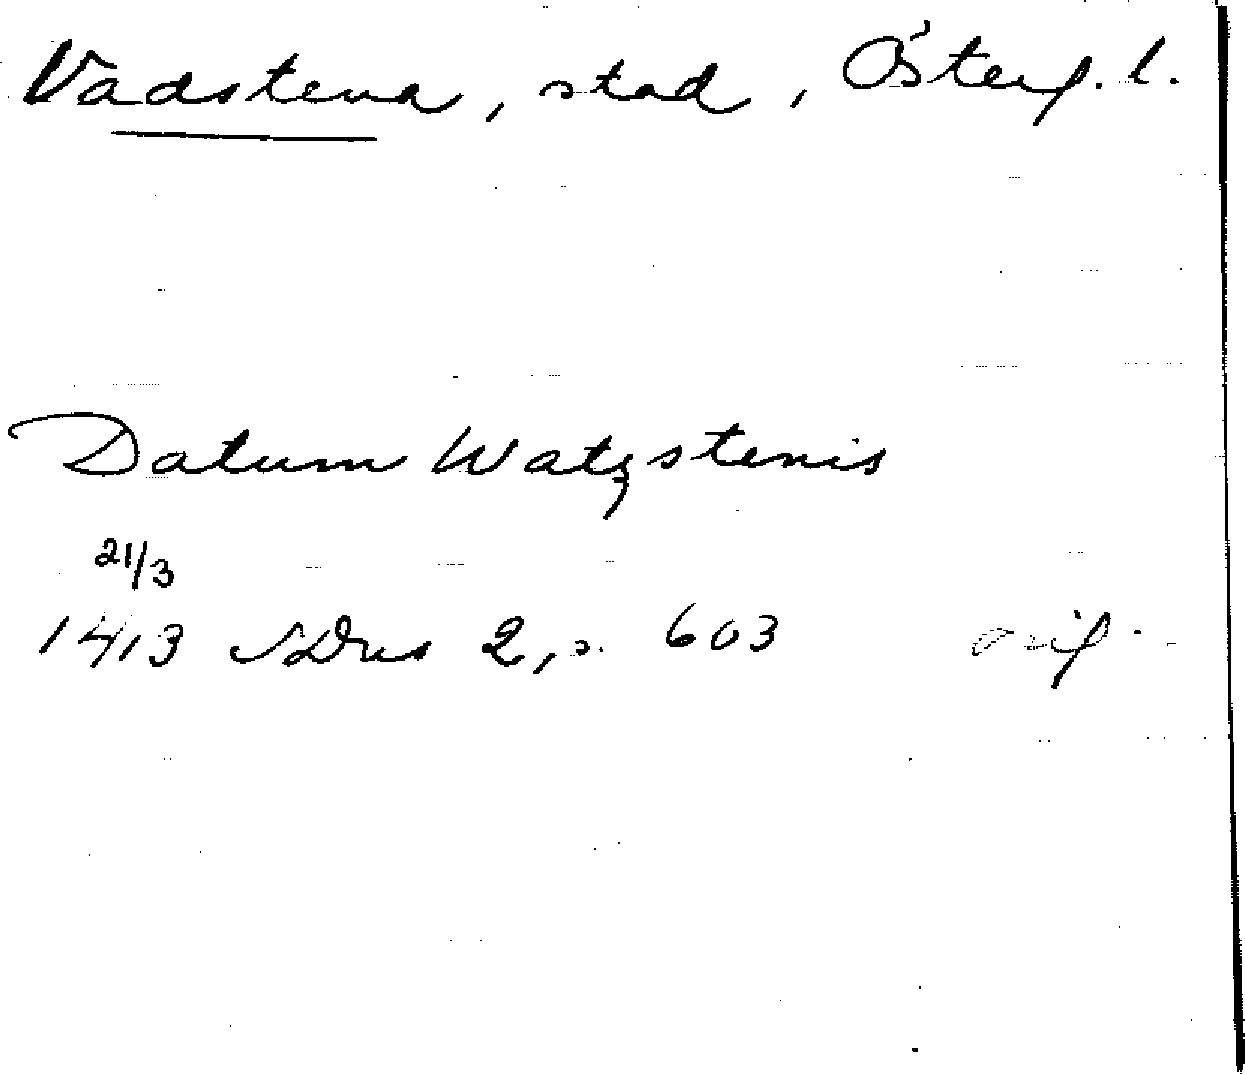 Vadstena, stad, Österg. l.
Datum Watzstenis
21/3
1413 SDns 2, s. 603 orig.